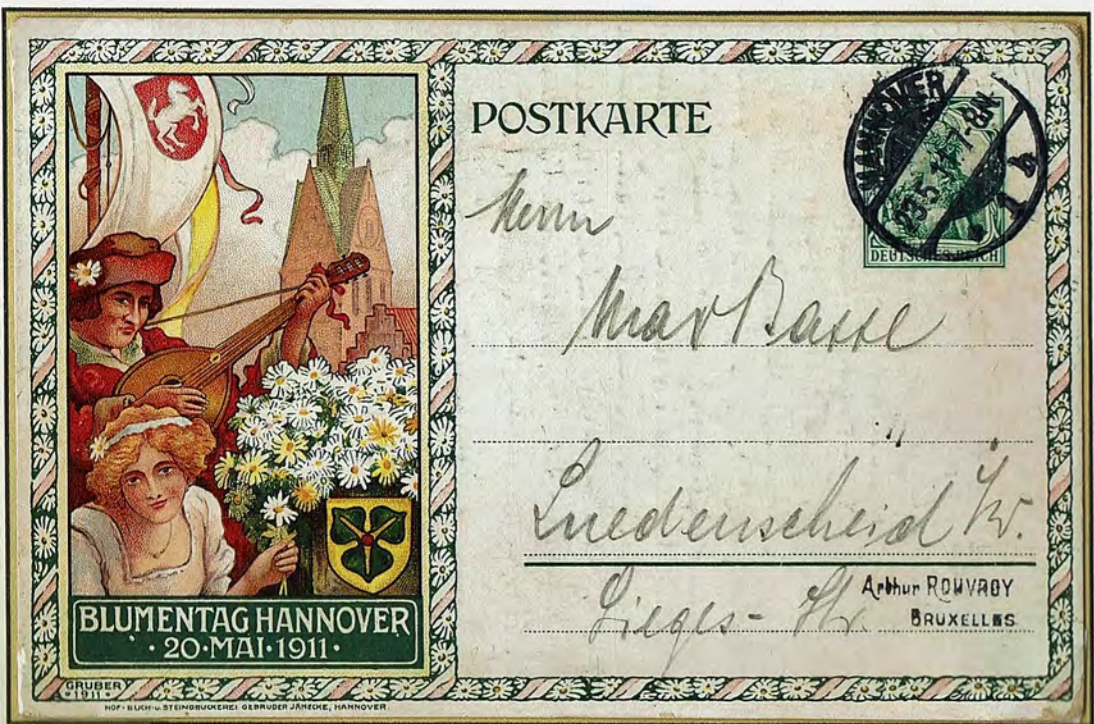 POSTKARTE
HANNOVER
23.5. 7-8N.
1
DEUTSCHES REICH
Herrn
Max Basse
Luedenscheid
Sieges-Str.
Arthur ROUVROY
BRUXELLES
BLUMENTAG HANNOVER
·20·MAI·1911·
GRUBER
·1911·
HOF-BUCH-U.STEINDRUCKEREI GEBRÜDER JÄNECKE, HANNOVER.